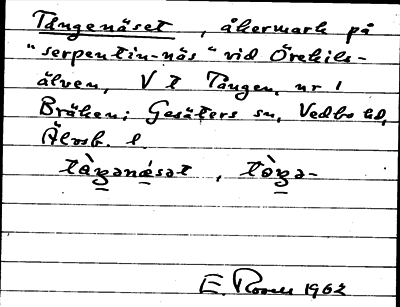 Tångenäset, åkermark på
"serpentin-näs" vid Örekils-
älven, V t Tången, nr 1
Bräken; Gesäters sn, Vedbo hd,
Älvsb. l.
tàŋənǽsət, tòŋə-
E. Rooes 1962